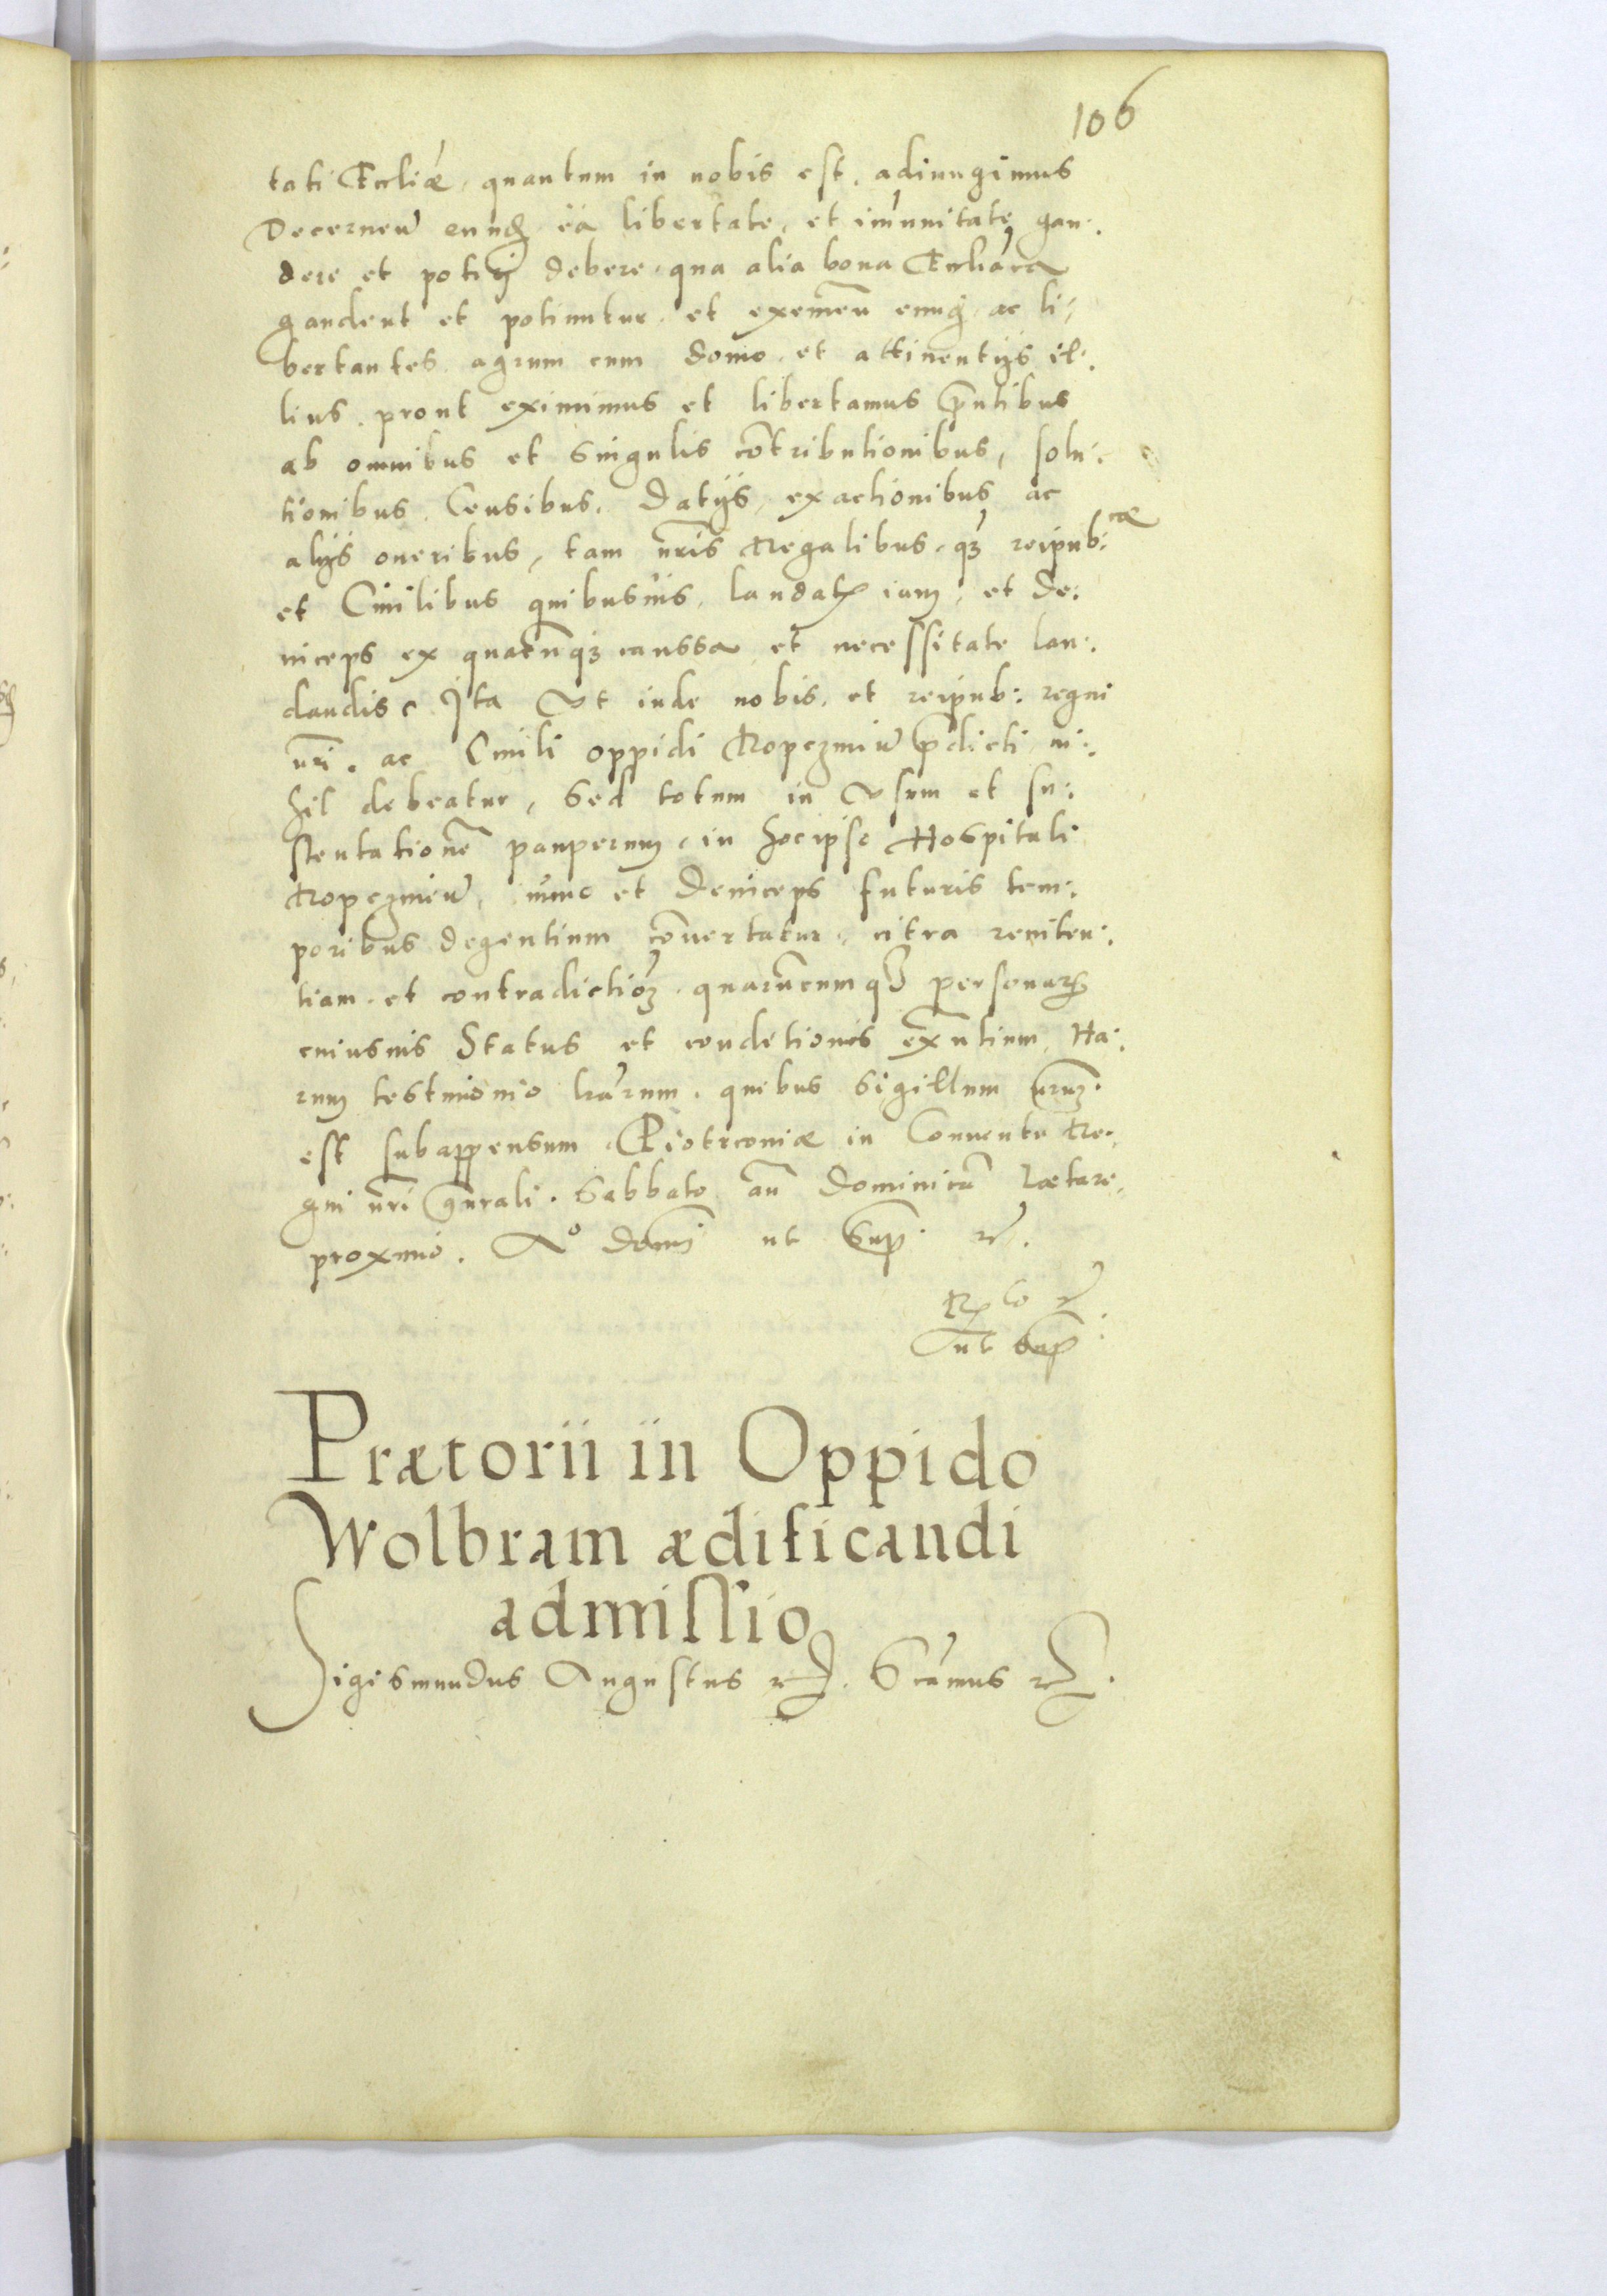 106
tati Eccliæ, quantum in nobis est, adiungimus
Decernen̄ eundē ea libertate, et im̄unitate gau:
dere et potiri debere, qua alia bona Eccliastica
gaudent et potiuntur, et eximen̄ eundē ac li-
bertantes agrum cum domo et attinentijs il:
lius, prout eximimus et libertamus p̄ntibus
ab omnibus et singulis cōtributionibus, solu:
tionibus, Censibus, Datijs, exactionibus ac
alijs oneribus, tam nr̄is Regalibus, q̄ȝ reipub:cæ
et Ciuilibus quibusuis, laudatis iam, et de:
inceps ex quacūqȝ caussa et necessitate lau:
daudis. Ita ut inde nobis, et reipub: regni
nr̄i, ac Ciuili oppidi Ropczmien̄ p̄dicti ni:
hil debeatur, Sed totum in usum et su:
stentationē pauperum, in hocipso Hospitali
Ropczmien̄, nunc et Deinceps futuris tem:
poribus degentium cōuertatur, citra reniten:
tiam, et contradictiōȝ, quarūcumqȝ personarȝ
cuiusuis Status et conditionis exn̄tium, Ha:
rum testimonio lr̄arum, quibus sigillum nr̄um
est subappensum, Piotrcouiæ in Conuentu Re:
gni nr̄i gn̄rali, Sabbato an̄ Dominicā Lætare
proximo. A° domī ut Sup.
ut sup
Prætorii in Oppido
Wolbram ædificandi
admissio
Sigismundus Augustus Scāmus